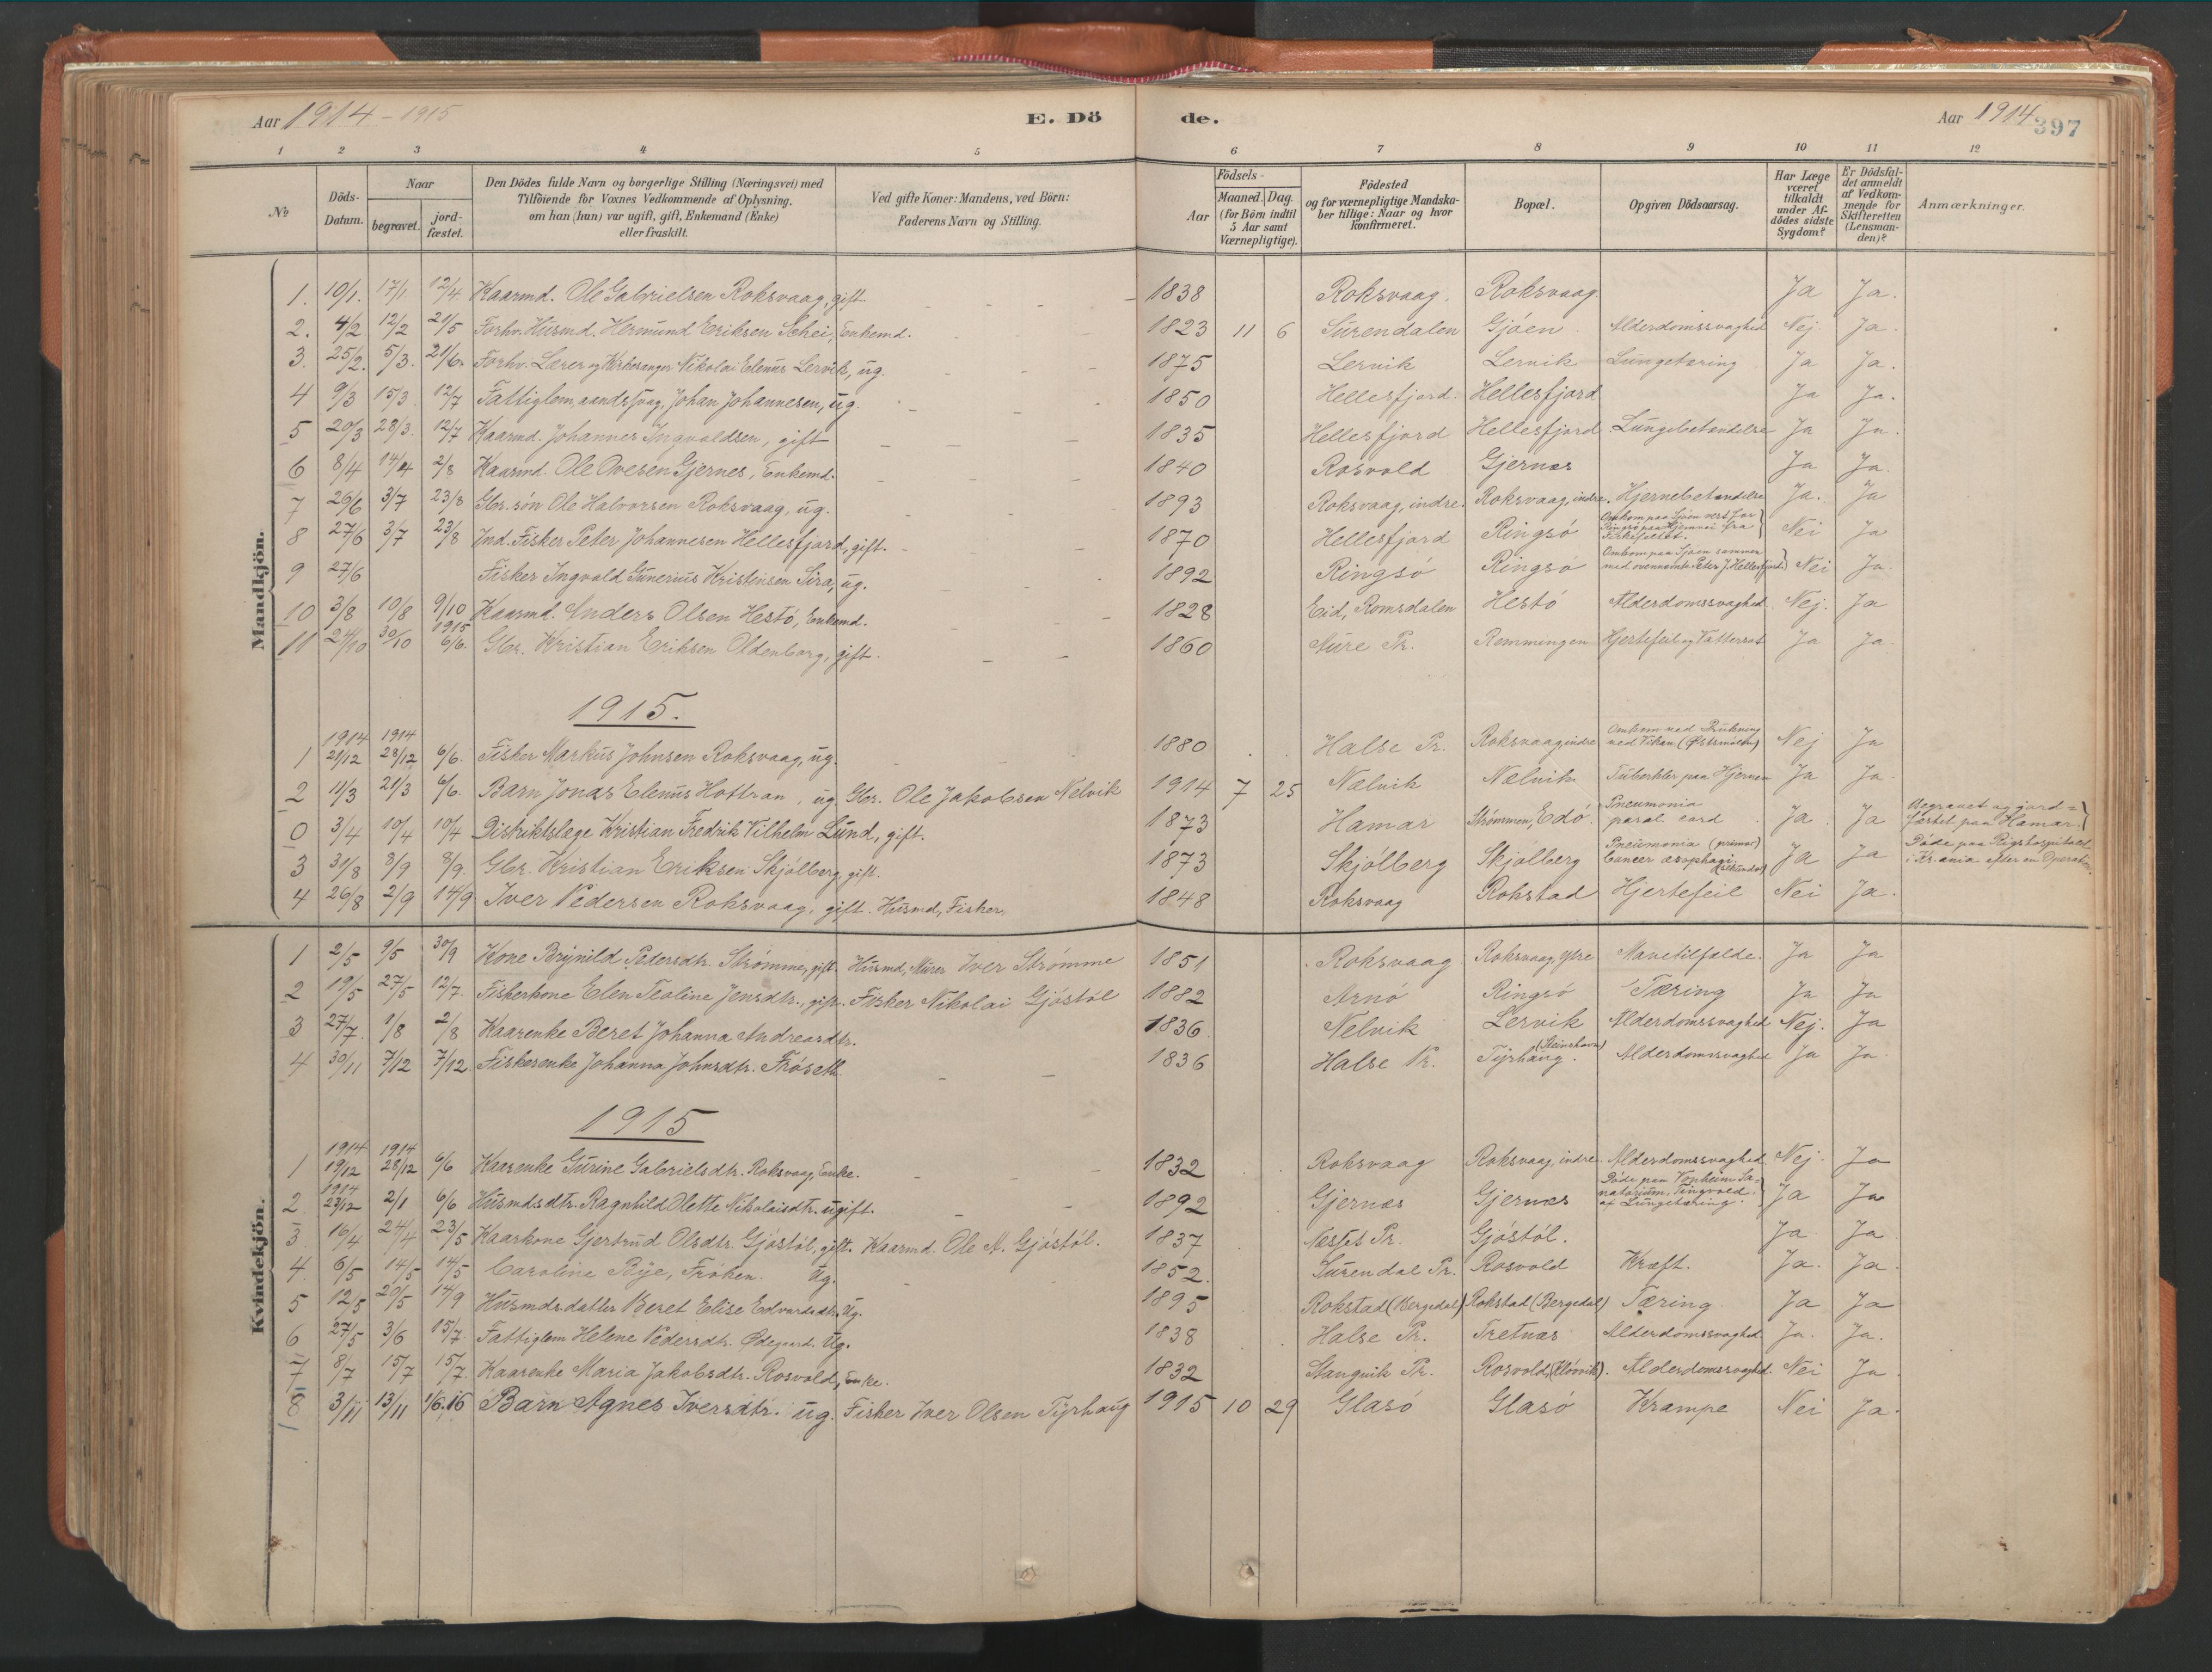 Aar 1914 - 1915 E. Dö de. Aar 1914 397
1 2 3 4 5 6 7 8 9 10 11 12
No
Döds-Datum.
Naar
begravet.
jord-fæstet.
Den Dödes fulde Navn og borgerlige Stilling (Næringsvei) med
Tilföiende for Voxnes Vedkommende af Oplysning.
om han (hun) var ugift, gift, Enkemand (Enke)
eller fraskilt.
Ved gifte Koner: Mandens, ved Börn:
Faderens Navn og Stilling.
Födsels-
Aar
Maaned. Dag.
(for Börn indtil
5 Aar samt
Værnepligtige).
Födested
og for værnepligtige Mandska-
ber tillige: Naar og hvor
konfirmeret.
Bopæl.
Opgiven Dödsaarsag.
Har Læge
været
tilkaldt
under Af-
dödes sidste
Sygdom?
Er Dödsfal-
det anmeldt
af Vedkom-
mende for
Skifteretten
(Lensman-
den)?
Anmærkninger.
Mandkjön.
1. 10/1. 17/1. 12/4. Kaarmd. Ole Gabrielsen Roksvaag, gift. 1838 Roksvaag. Roksvaag. Ja Ja.
2. 4/2 12/2 21/5 Forhv. Husmd. Hermund Eriksen Schei, Enkemd. 1823 11 6 Surendalen Gjøen Alderdomssvaghed Nej. Ja.
3. 25/2. 5/3. 21/6. Forhv. Lærer og Kirkesanger Nikolai Elenus Lervik, ug. 1875 Lervik Lervik Lungetæring Ja Ja.
4 9/3 15/3 12/7 Fattiglem, aandssvag, Johan Johannesen, ug. 1850 Hellesfjord. Hellesfjord Ja Ja.
5 20/3 28/3. 12/7 Kaarmd. Johannes Ingvaldsen, gift 1835 Hellesfjord Hellesfjord Lungebetændelse Ja Ja.
6 8/4 14/4 2/8 Kaarmd. Ole Ovesen Gjernes, Enkemd. 1840 Rosvold Gjernæs Ja Ja.
7 26/6 3/7 23/8 Gbr. søn Ole Halvorsen Roksvaag, ug. 1893 Roksvaag, indre. Roksvaag, indre. Hjernebetændelse Ja. Ja
8 27/6 3/7 23/8 Ind. Fisker Peter Johannesen Hellesfjord, gift. 1870 Hellesfjord Ringsö Omkom paa Sjøen vest for
Ringsø paa Hjemvei fra
Fiskefeltet. Nei Ja
9 27/6 Fisker Ingvald Gunerius Kristensen Sira, ug. 1892 Ringsö Ringsö Omkom paa Sjøen sammen
med ovennevnte Peter J. Hellesfjord. Nei Ja.
10 3/8 10/8 9/10 Kaarmd. Anders Olsen Hestö, Enkemd. 1828 Eid, Romsdalen Hestö Alderdomssvaghed Nej. Ja
11 24/10 30/10 1915 6/6. Gbr. Kristian Eriksen Oldenborg, gift. 1860 Aure Pr. Remmingen Hjertefeil og Vattersot Ja Ja.
1915.
1 1914 21/12 1914 28/12 6/6. Fisker Markus Johnsen Roksvaag, ug. 1880 Halse Pr. Roksvaag indre Omkom ved Drukning
ved Vikan (Østsmölen) Nej Ja
2 11/3 21/3 6/6. Barn Jonas Elenus Hottran, ug Gbr. Ole Jakobsen Nelvik 1914 7 25 Nælvik Nælvik Tuberkler paa Hjernen Ja Ja.
0 3/4 10/4 10/4 Distriktslæge Kristian Fredrik Vilhelm Lund, gift. 1873 Hamar Strömmen, Edö. Pneumonia
paral. cord Ja Ja Begravet og jord=
fæstet paa Hamar.
3 31/8 8/9 8/9. Gbr. Kristian Eriksen Skjölberg, gift. 1873 Skjölberg Skjölberg Pneumonia (primær)
Cancer oesophagi (sekundær) Ja Ja Døde paa Rigshospitalet
i Kr.ania efter en Operation.
4 26/8 2/9 14/9 Iver Pedersen Roksvaag, gift. Husmd, Fisker. 1848 Roksvaag Rokstad Hjertefeil Nei Ja.
Kvindekjön.
1 2/5 9/5 30/9 Kone Brynild Pedersdtr. Strømme, gift. Husmd, Murer Iver Strømme 1851 Roksvaag Roksvaag, ytre Mavetilfælde. Ja Ja
2 19/5 27/5 12/7. Fiskerkone Elen Teoline Jensdtr., gift. Fisker Nikolai Gjöstöl 1882 Arnö Ringsö Tæring Ja Ja
3 27/7 1/8 2/8 Kaarenke Beret Johanna Andreasdtr. 1836 Nelvik Lervik Alderdomssvaghed Nej. Ja
4 30/11 7/12 7/12. Fiskerenke Johanna Johnsdtr. Fröseth. 1836 Halse Pr. Tyrhaug. (Steinshavn) Alderdomssvaghed Ja Ja.
1915
1 1914 19/12 1914 28/12 6/6 Kaarenke Gurine Gabrielsdtr. Roksvaag, Enke. 1832 Roksvaag Roksvaag, indre. Alderdomssvaghed Nej. Ja
2 1914 23/12 2/1 6/6 Husmdsdtr. Ragnhild Olette Nikolaisdtr. ugift. 1892 Gjernes Gjernæs Døde paa Vonheim Sa=
natorium, Tingvold.
af Lungetæring. Ja Ja
3 16/4 24/4 23/5 Kaarkone Gjertrud Olsdtr. Gjöstöl, gift. Kaarmd. Ole A. Gjöstöl. 1837 Næsset Pr. Gjöstöl. Ja Ja
4 6/5 14/5 14/5 Carolina Bye, Fröken. Ug. 1852. Surendal Pr. Rosvold Kræft. Ja. Ja.
5 12/5 20/5 14/9 Husmds. datter Beret Elise Edvardsdtr. Ug. 1895 Rokstad (Bergedal) Rokstad (Bergedal) Tæring. Ja Ja
6 27/5 3/6 15/7. Fattiglem Helene Pedersdtr. Ødegaard. Ug. 1838 Halse Pr. Tretnæs Alderdomssvaghed. Ja. Ja.
7 8/7 15/7 15/7. Kaarenke Maria Jakobsdtr. Rosvold, Enke. 1832 Stangvik Pr. Rosvold, (Klövvik). Alderdomssvaghed. Nei Ja.
8 3/11 13/11 1/6.16 Barn Agnes Iversdtr. ug. Fisker Iver Olsen Tyrhaug 1915 10 29 Glasö Glasö Krampe Nei Ja.